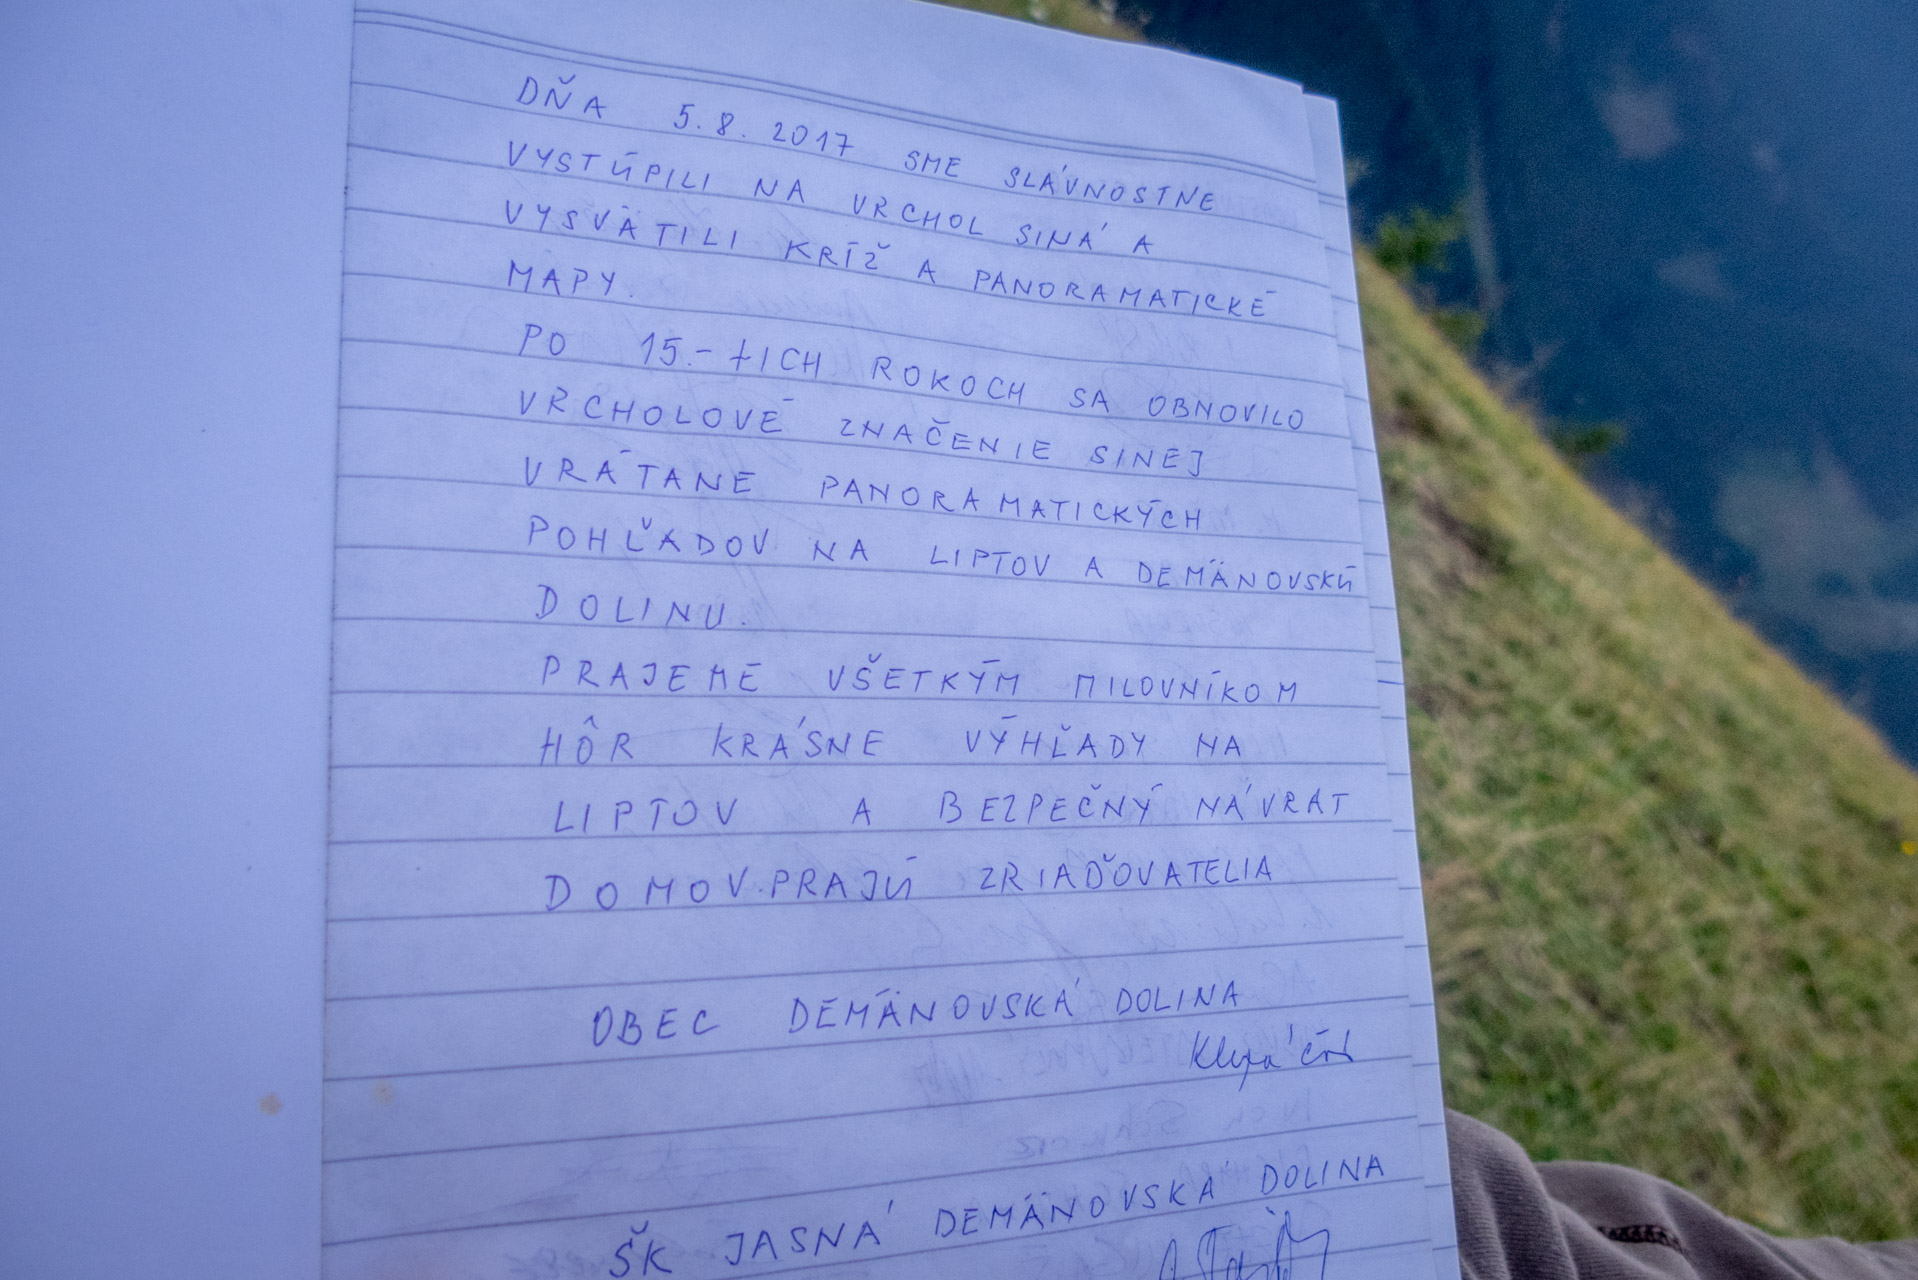 DŇA 5.8.2017 SME SLÁVNOSTNE
VYSTÚPILI NA VRCHOL SINÁ A
VYSVÄTILI KRÍŽ A PANORAMATICKÉ
MAPY.
PO 15.-TICH ROKOCH SA OBNOVILO
VRCHOLOVÉ ZNAČENIE SINEJ
VRÁTANE PANORAMATICKÝCH
POHĽADOV NA LIPTOV A DEMÄNOVSKÚ
DOLINU.
PRAJEME VŠETKÝM MILOVNÍKOM
HÔR KRÁSNE VÝHĽADY NA
LIPTOV A BEZPEČNÝ NÁVRAT
DOMOV.PRAJÚ ZRIAĎOVATELIA
OBEC DEMÄNOVSKÁ DOLINA
ŠK JASNÁ DEMÄNOVSKÁ DOLINA